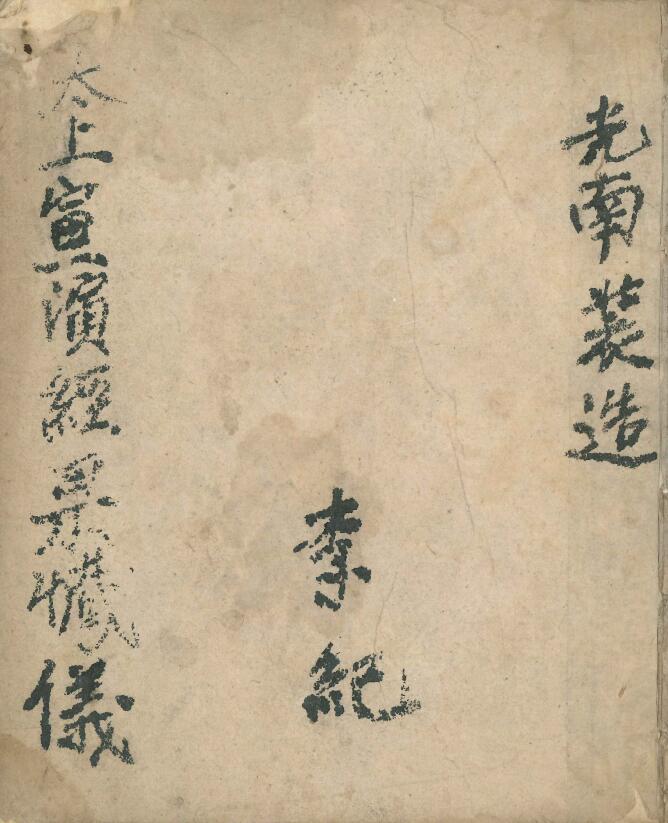 光南裝造
李紀
太上宣演經果懺儀